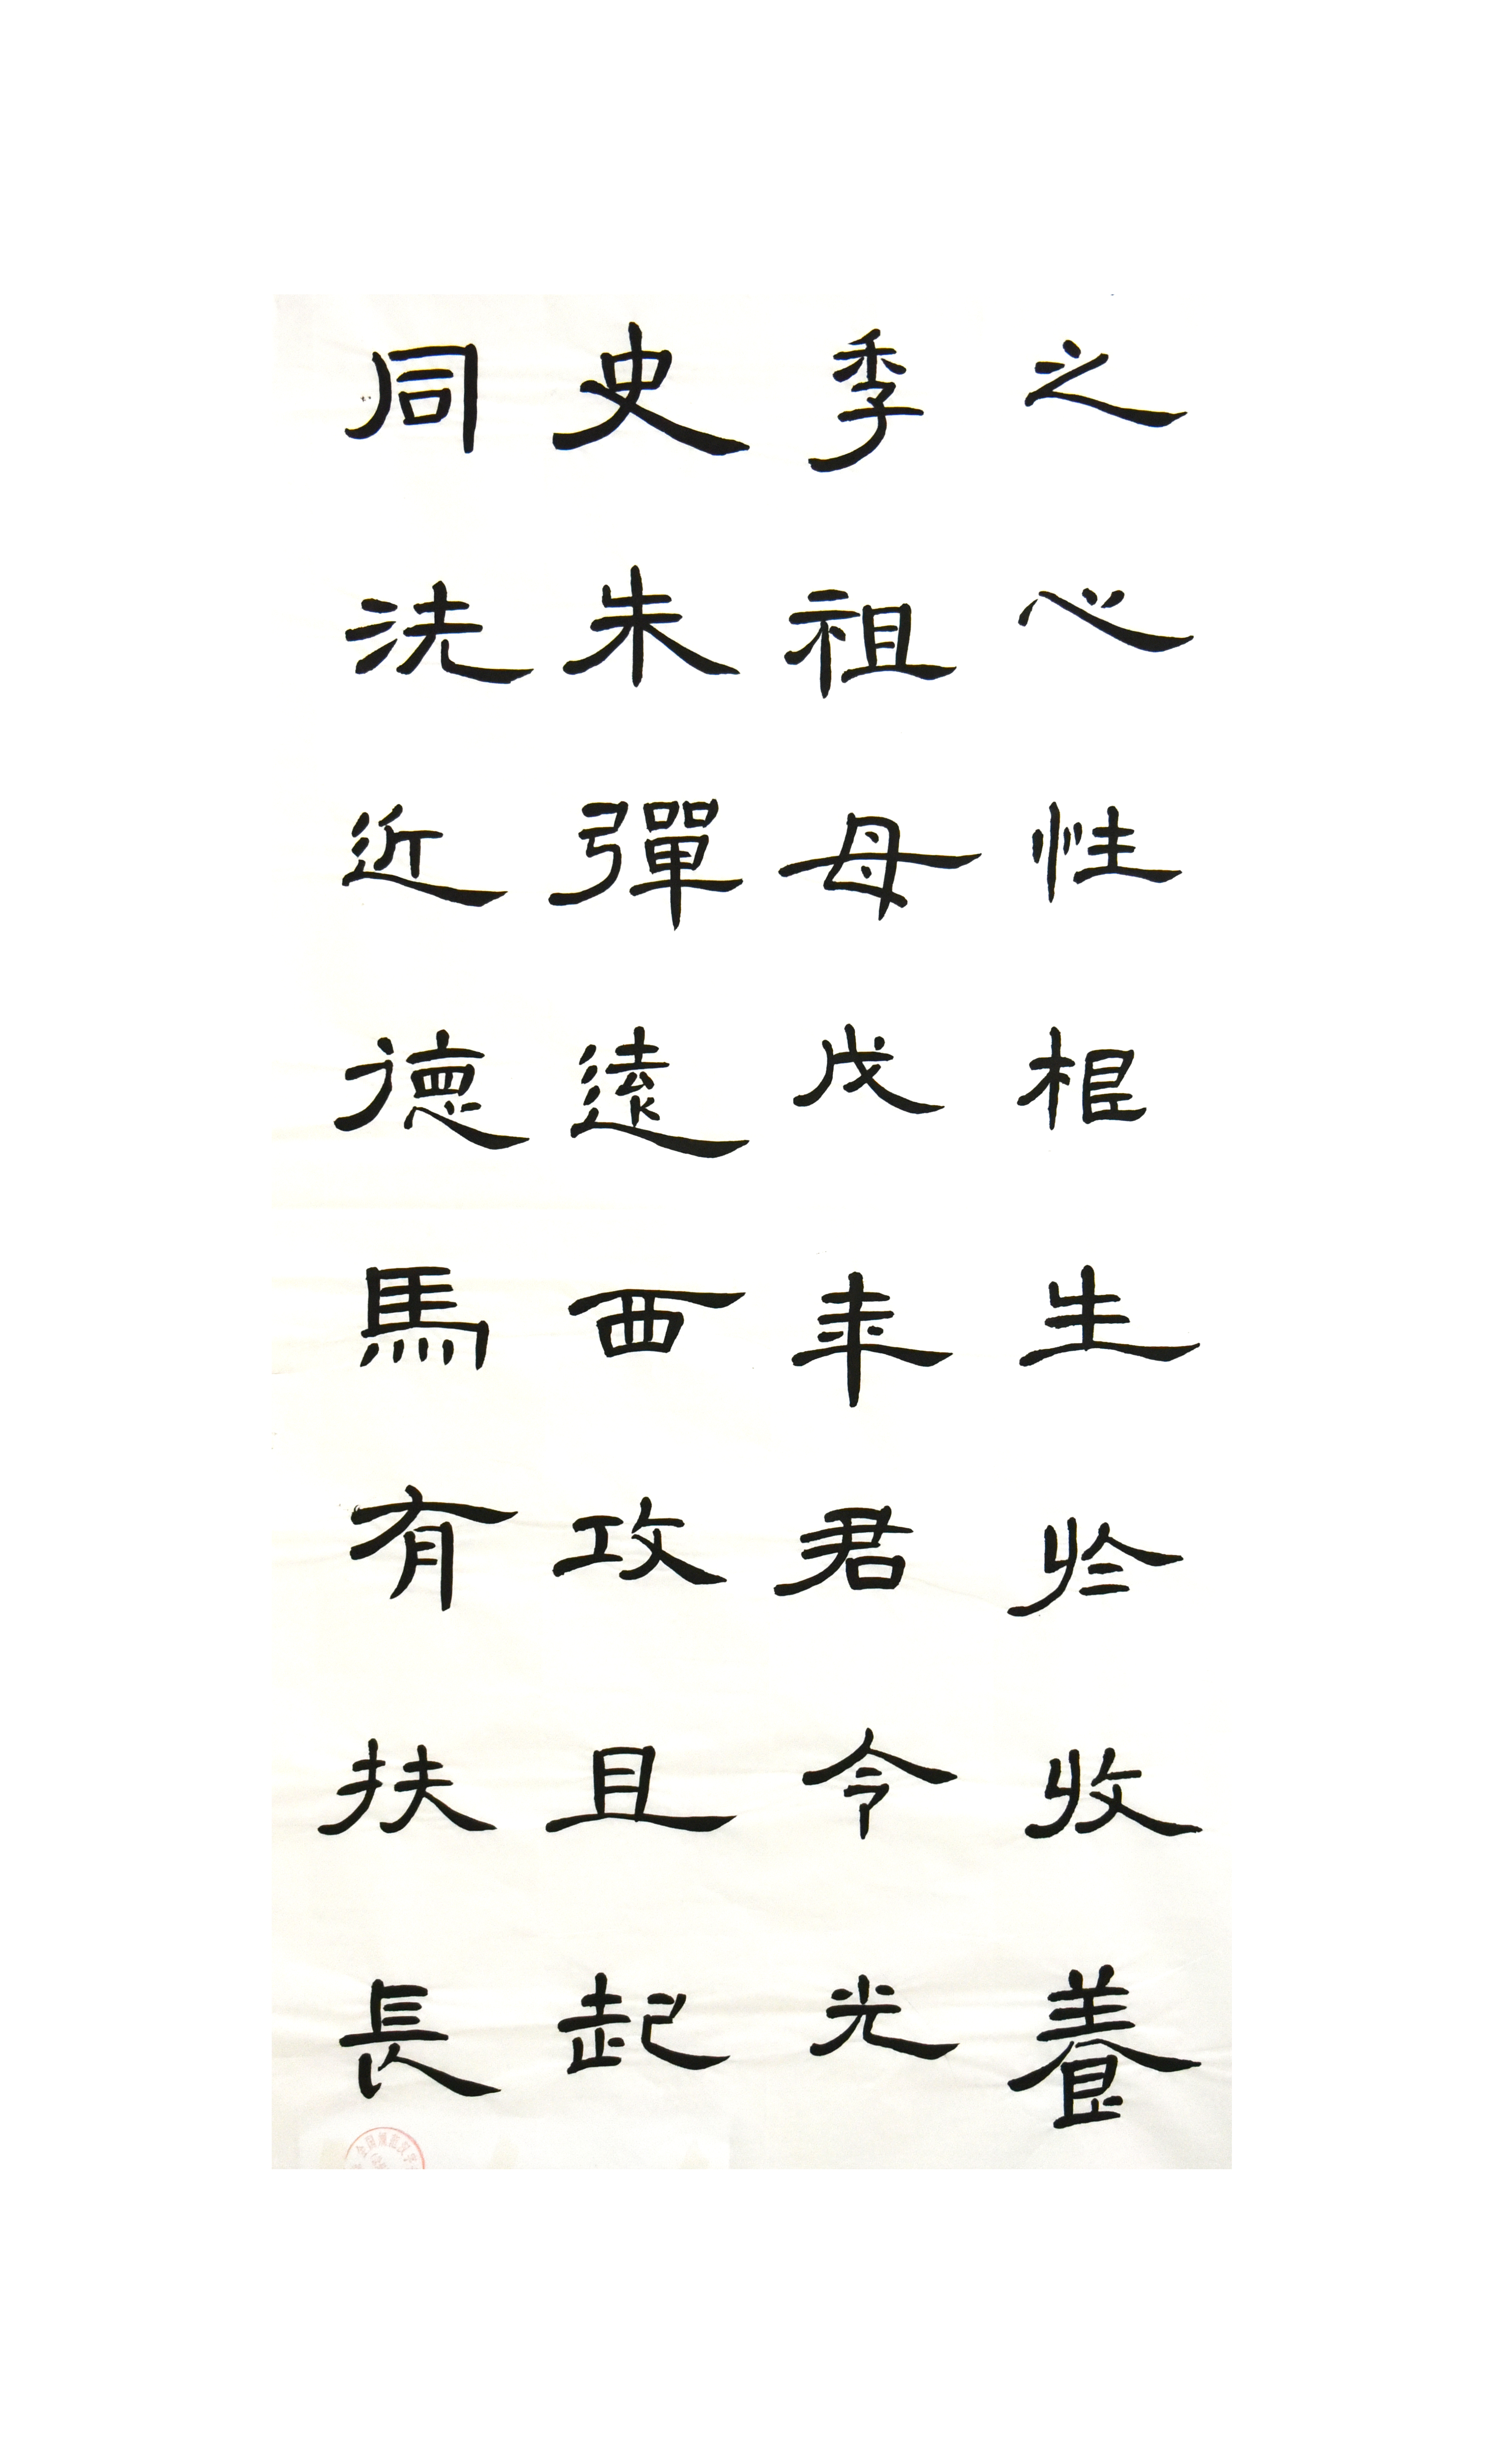 之心性根生於收養
季祖母戊年君令光
史朱彈遠西攻且起
同洗近德馬有扶長